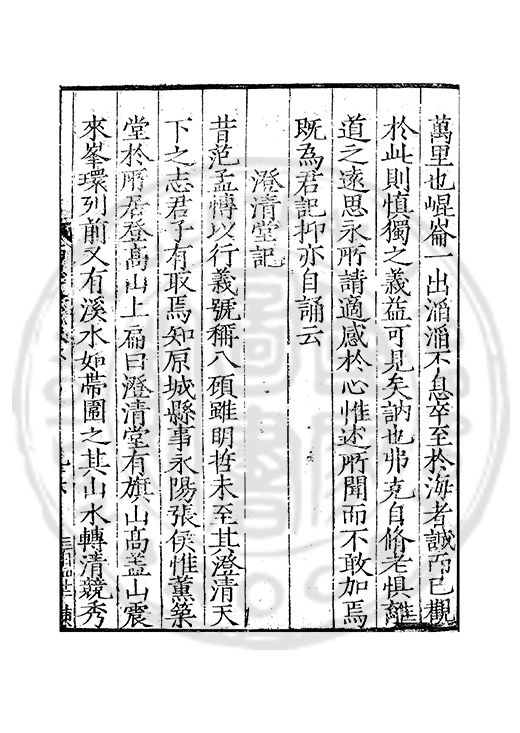 萬里也崐崙一出滔滔不息卒至於海者誠而已觀
於此則慎獨之義益可見矣訥也弗克自脩老惧離
道之逺思永所請適感於心惟述所聞而不敢加焉
既為君記抑亦自誦云
澄清堂記
昔范孟慱以行義號稱八碩雖明哲未至其澄清天
下之志君子有取焉知原城縣事永陽張侯惟薫築
堂於所居登髙山上扁曰澄清堂有旗山髙盖山震
來峯環列前又有溪水如帶圍之其山水轉清競秀